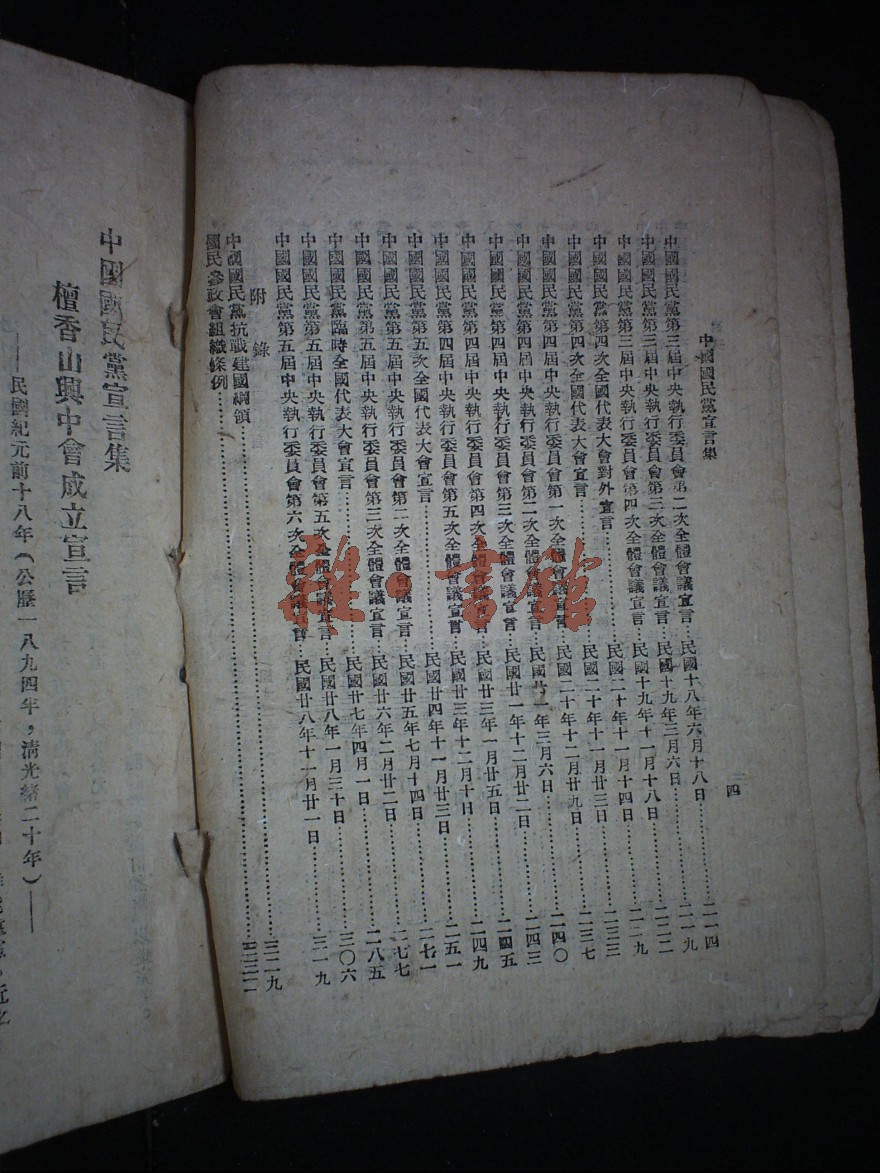 中國國民黨宣言集
四
中國國民黨第三屆中央執行委員會第二次全體會議宣言……民國十八年六月十八日……二一四
中國國民黨第三屆中央執行委員會第三次全體會議宣言……民國十九年三月六日……二一九
中國國民黨第三屆中央執行委員會第四次全體會議宣言……民國十九年十一月十八日……二二二
中國國民黨第四次全國代表大會對外宣言……民國二十年十一月十四日……二二九
中國國民黨第四次全國代表大會宣言……民國二十年十一月廿三日……二三三
中國國民黨第四屆中央執行委員會第一次全體會議宣言……民國二十年十二月廿九日……二三七
中國國民黨第四屆中央執行委員會第二次全體會議宣言……民國廿一年三月六日……二四〇
中國國民黨第四屆中央執行委員會第三次全體會議宣言……民國廿一年十二月廿二日……二四三
中國國民黨第四屆中央執行委員會第四次全體會議宣言……民國廿三年一月廿五日……二四五
中國國民黨第四屆中央執行委員會第五次全體會議宣言……民國廿三年十二月十日……二四九
中國國民黨第五次全國代表大會宣言……民國廿四年十一月廿三日……二五一
中國國民黨第五屆中央執行委員會第二次全體會議宣言……民國廿五年七月十四日……二七一
中國國民黨第五屆中央執行委員會第三次全體會議宣言……民國廿六年二月廿二日……二七七
中國國民黨臨時全國代表大會宣言……民國廿七年四月一日……二八五
中國國民黨第五屆中央執行委員會第五次全體會議宣言……民國廿八年一月三十日……三〇六
中國國民黨第五屆中央執行委員會第六次全體會議宣言……民國廿八年十一月廿一日……三一九
附錄
中國國民黨抗戰建國綱領……三二九
國民參政會組織條例……三三二
中國國民黨宣言集
檀香山興中會成立宣言
——民國紀元前十八年(公歷一八九四年,清光緒二十年)——
雜·書館